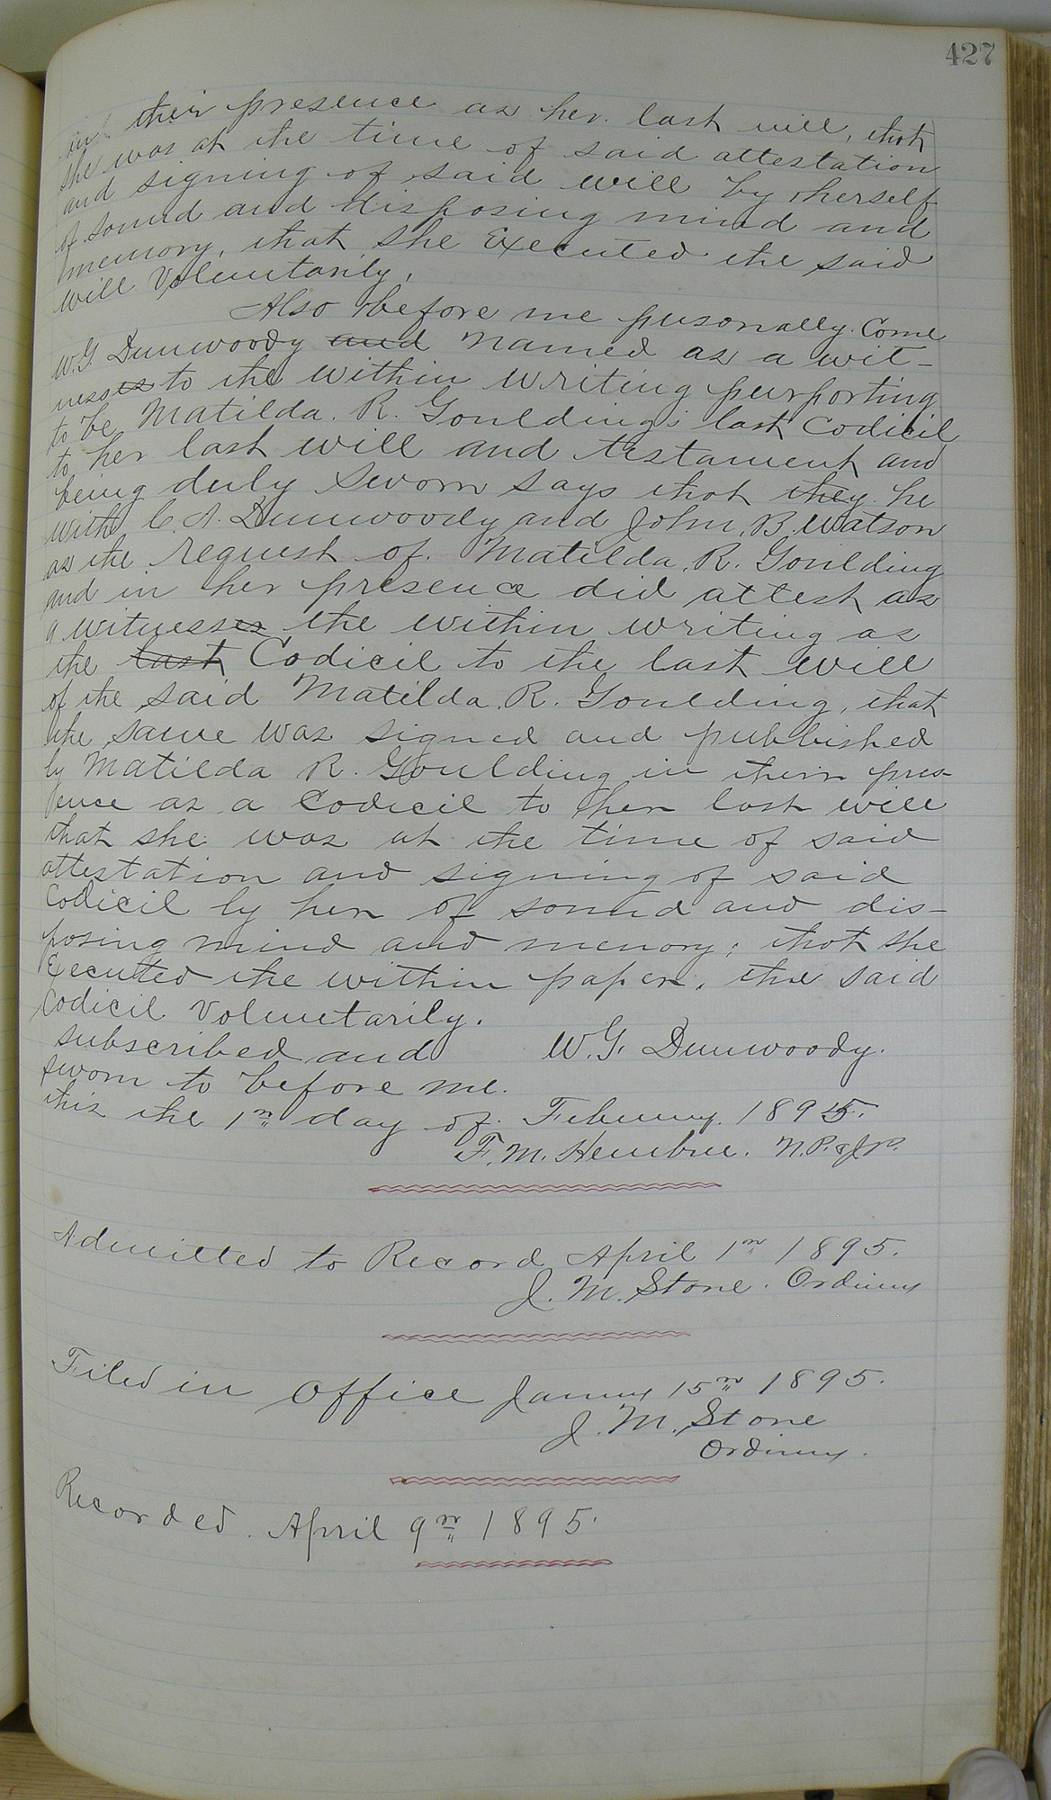 427
in their presence as her last will, that
she was at the time of said attestation
and signing of said will by herself
of sound and disposing mind and
memory, that she Executed the said
will Voluntarily.
Also before me personally Come
W.G. Dunwoody and named as a wit-
nesses to the within writing purporting
to be Matilda. R. Goulding's last Codicil
to her last will and testament and
being duly sworn says that they he
with C. A. Dunwoody and John. B. Watson
as the request of Matilda. R. Goulding
and in her presence did attest as
a witnesses the within writing as
the last Codicil to the last will
of the said Matilda. R. Goulding, that
the same was signed and published
by Matilda R. Goulding in their pres-
ence as a Codicil to her last will
that she was at the time of said
attestation and signing of said
Codicil by her of sound and dis-
posing mind and memory; that she
Executed the within paper, the said
Codicil Voluntarily.
subscribed and W. G. Dunwoody.
sworn to before me.
this the 1st day of February. 1895.
F. M. N.P. & J.P.
Admitted to Record April 1st 1895.
J. M. Stone. Ordinary
Filed in Office January 15th 1895.
J. M. Stone
Ordinary.
Recorded. April 9th 1895.